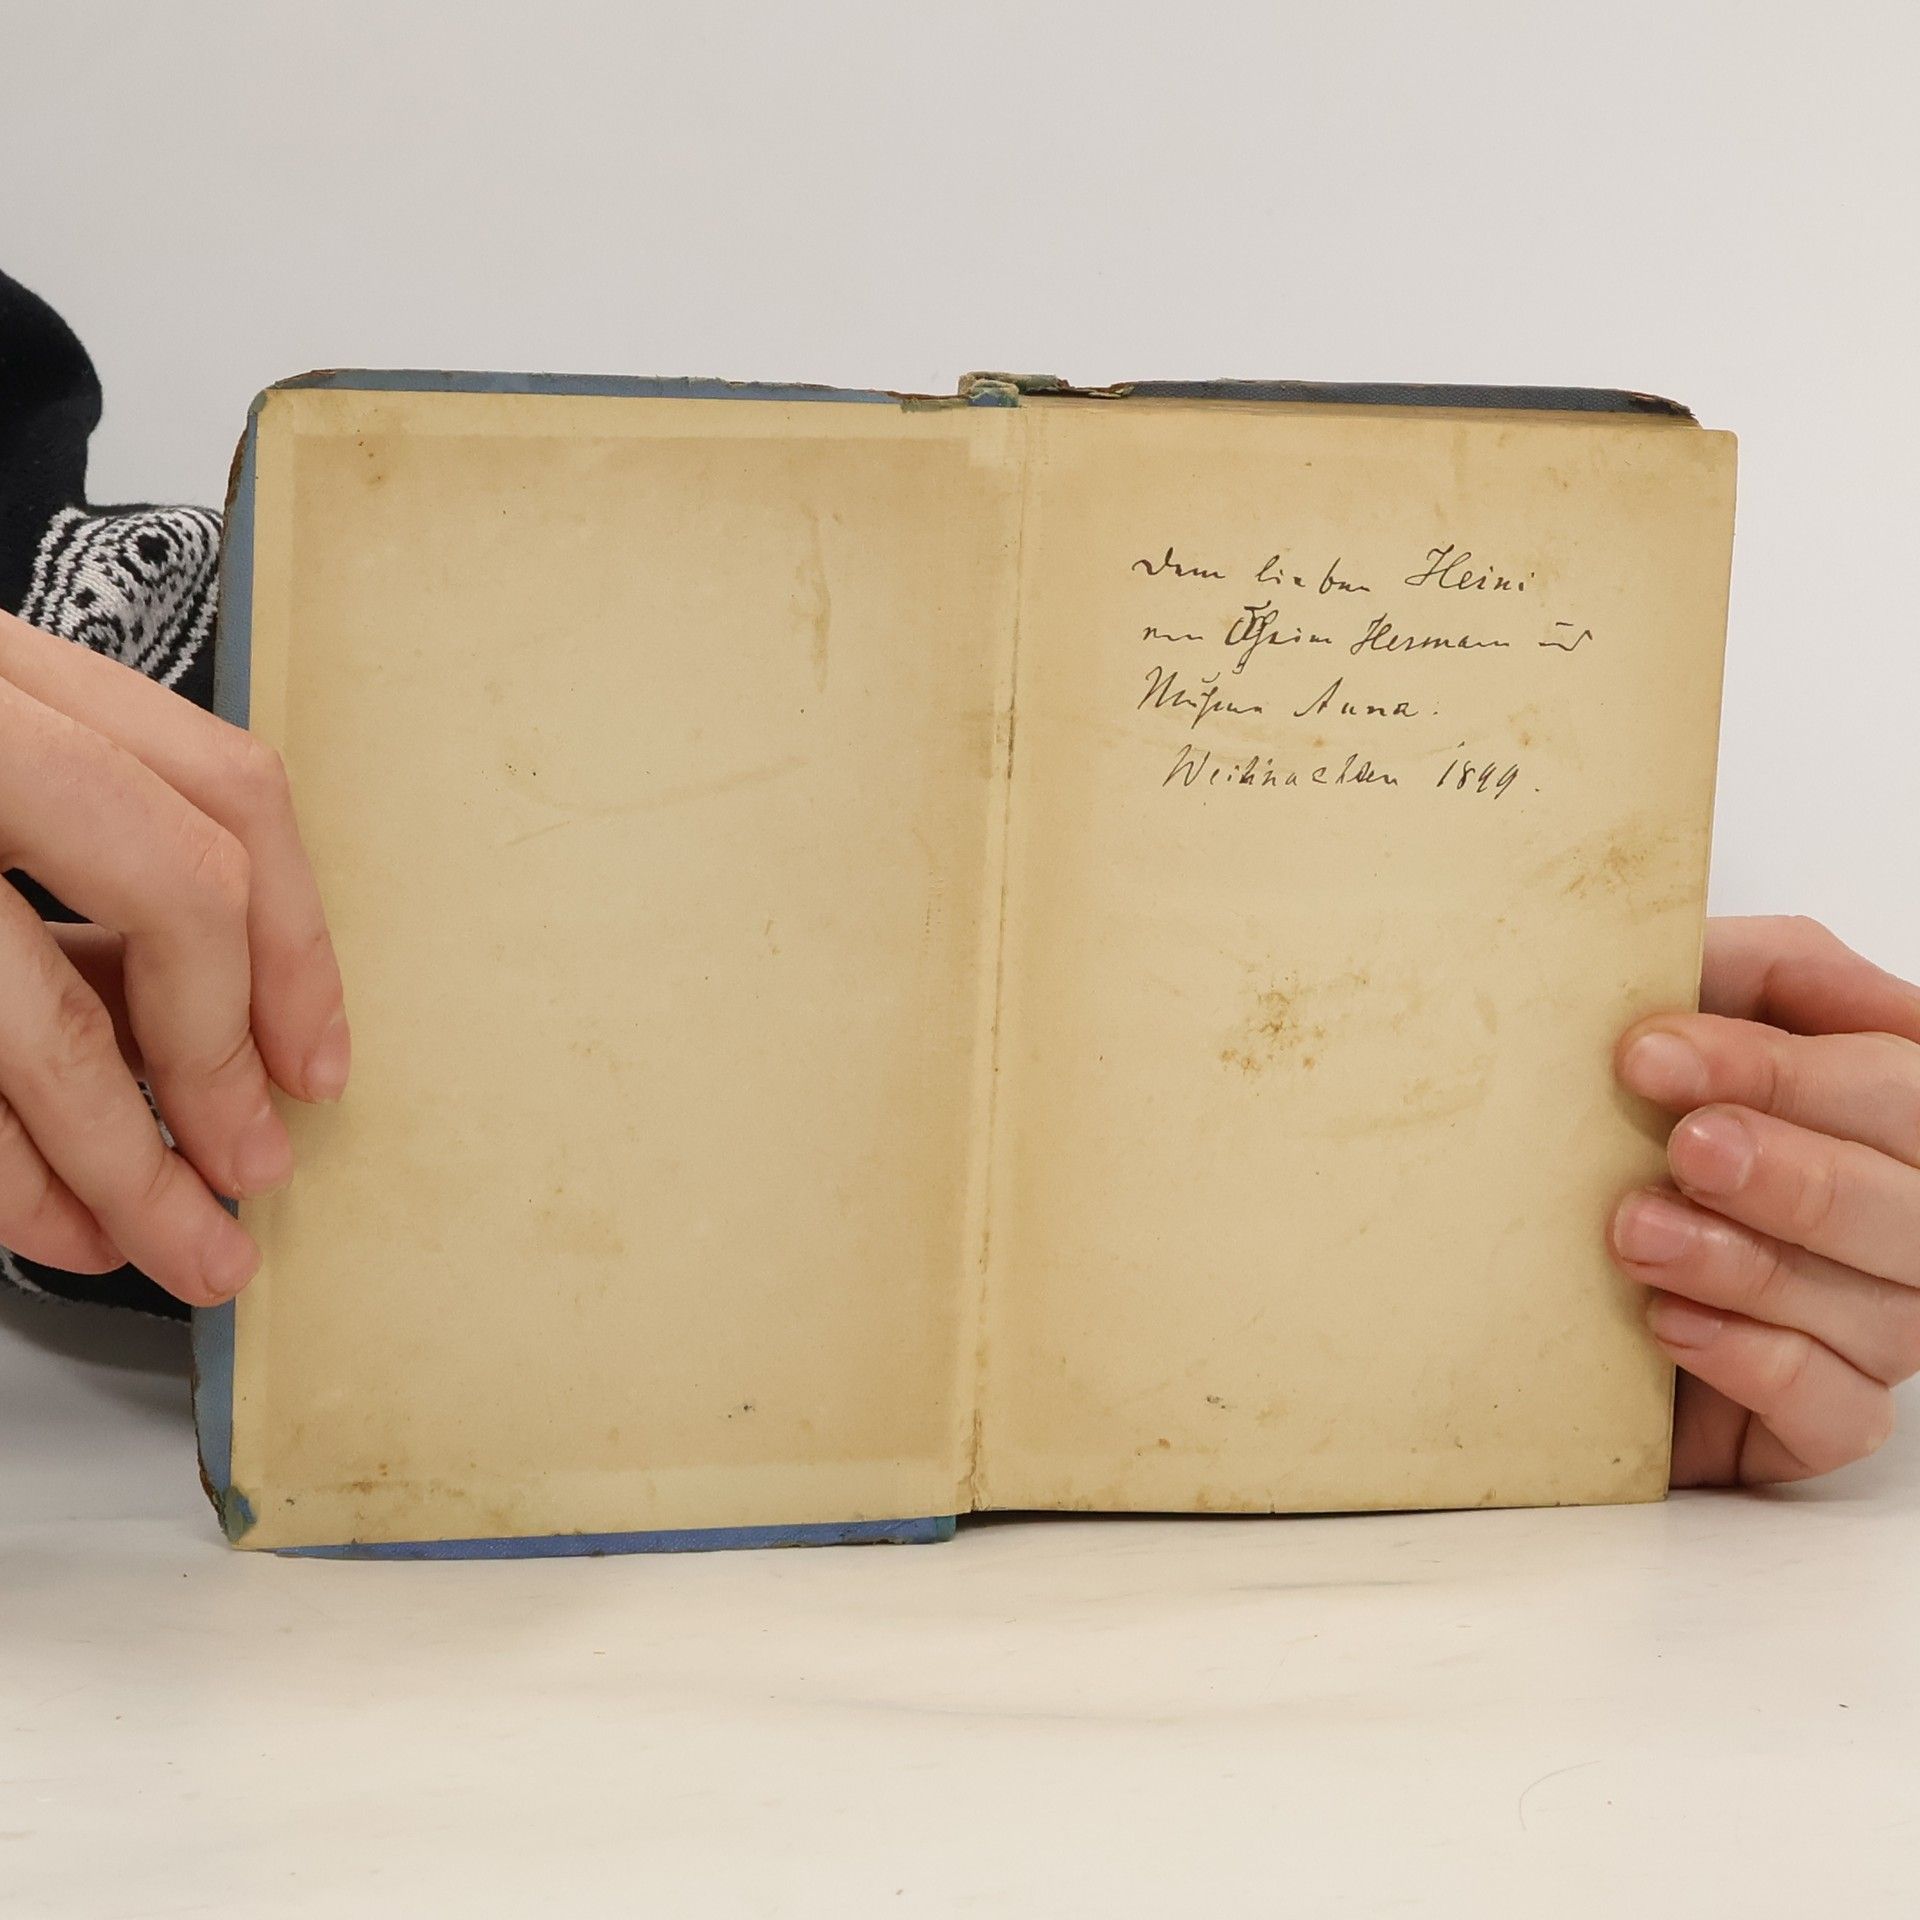 Dem lieben Heini
von Oheim Hermann und
Muhme Anna.
Weihnachten 1899.